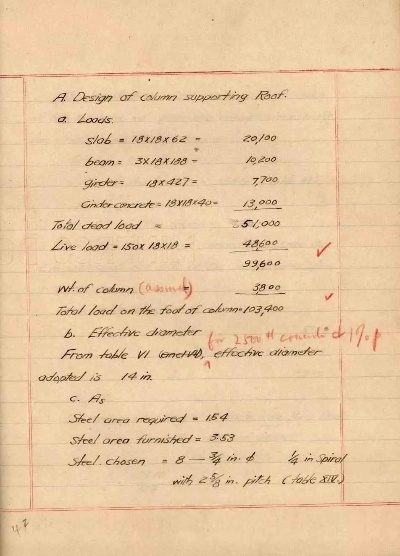 A. Design of column supporting Roof.
a. Loads.
slab = 18x18x62 = 20,100
beam = 3x18x188 = 10,200
girder = 18x427 = 7,700
Cinder concrete = 18x18x40 = 13,000
Total dead load = 51,000
Live load = 150x18x18 = 48600
99,600
Wt. of column (assumed) = 3800
Total load on the foot of column = 103,400
b. Effective diameter
for 2500 # concrete & 1% p
From table VI (and VII), effective diameter
adopted is 14 in.
c. As
Steel area required = 1.54
Steel area furnished = 3.53
Steel chosen = 8 — 3/4 in. ϕ 1/4 in spiral
with 2 5/8 in. pitch (table XIV.)
42